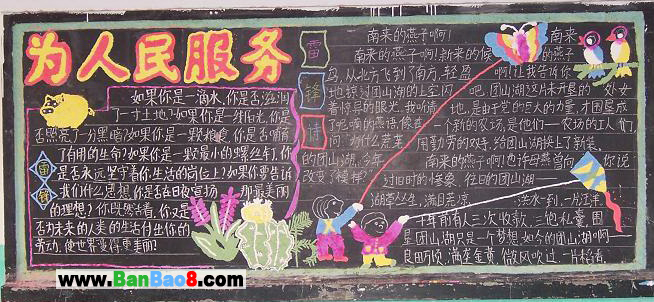 为人民服务
如果你是一滴水,你是否滋润
了一寸土地?如果你是一线阳光,你是
否照亮了一分黑暗?如果你是一颗粮食,你是否哺育
了有用的生命?如果你是一颗最小的螺丝钉,你
是否永远坚守着你生活的岗位上?如果你要告诉
我们什么思想,你是否在日夜宣扬 那最美丽
的理想?你既然活着,你又是
否为未来的人类的生活付出你的
劳动,使世界变得更美丽?
雷锋
雷锋诗
南来的燕子啊! 南来
南来的燕子啊!新来的候 的燕子
鸟,从北方飞到了南方,轻盈 啊!让我告诉你
地掠过团山湖的上空闪 吧,团山湖这片未开垦的 处女
着惊异的眼光,我听清 地,是由于党的巨大的力量,才围垦成
了呢喃的燕语,像在 一个新的农场,是他们——农场的工人们,
问:为什么荒芜 用勤劳的双手,给团山湖换上了新装。
的团山湖,今年 南来的燕子啊!也许丹燕曾向 你说
改变了模样? 过旧时的惨象,往日的团山湖——
湖草丛生,满目荒凉 洪水一到,一片汪洋
十年前有三次收款,三饱私囊,围
垦团山湖只是一个梦想。如今的团山湖啊——
良田万顷,满垄金黄,微风吹过一片稻香
www.BanBao8.com